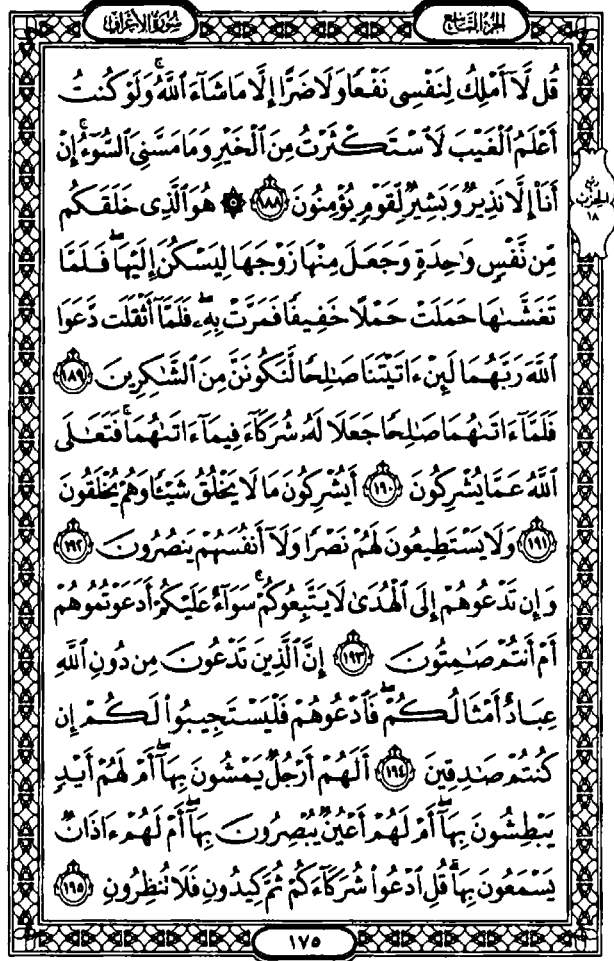 الجزء التاسع
سورة الأعراف
قُل لَّآ أَمْلِكُ لِنَفْسِى نَفْعًا وَلَا ضَرًّا إِلَّا مَا شَآءَ ٱللَّهُ ۚ وَلَوْ كُنتُ
أَعْلَمُ ٱلْغَيْبَ لَٱسْتَكْثَرْتُ مِنَ ٱلْخَيْرِ وَمَا مَسَّنِىَ ٱلسُّوٓءُ ۚ إِنْ
أَنَا۠ إِلَّا نَذِيرٌ وَبَشِيرٌ لِّقَوْمٍ يُؤْمِنُونَ ﴿١٨٨﴾ ۞ هُوَ ٱلَّذِى خَلَقَكُم
ربع الحزب ١٨
مِّن نَّفْسٍ وَٰحِدَةٍ وَجَعَلَ مِنْهَا زَوْجَهَا لِيَسْكُنَ إِلَيْهَا ۖ فَلَمَّا
تَغَشَّىٰهَا حَمَلَتْ حَمْلًا خَفِيفًا فَمَرَّتْ بِهِۦ ۖ فَلَمَّآ أَثْقَلَت دَّعَوَا
ٱللَّهَ رَبَّهُمَا لَئِنْ ءَاتَيْتَنَا صَٰلِحًا لَّنَكُونَنَّ مِنَ ٱلشَّٰكِرِينَ ﴿١٨٩﴾
فَلَمَّآ ءَاتَىٰهُمَا صَٰلِحًا جَعَلَا لَهُۥ شُرَكَآءَ فِيمَآ ءَاتَىٰهُمَا ۚ فَتَعَٰلَى
ٱللَّهُ عَمَّا يُشْرِكُونَ ﴿١٩٠﴾ أَيُشْرِكُونَ مَا لَا يَخْلُقُ شَيْـًٔا وَهُمْ يُخْلَقُونَ
﴿١٩١﴾ وَلَا يَسْتَطِيعُونَ لَهُمْ نَصْرًا وَلَآ أَنفُسَهُمْ يَنصُرُونَ ﴿١٩٢﴾
وَإِن تَدْعُوهُمْ إِلَى ٱلْهُدَىٰ لَا يَتَّبِعُوكُمْ ۚ سَوَآءٌ عَلَيْكُمْ أَدَعَوْتُمُوهُمْ
أَمْ أَنتُمْ صَٰمِتُونَ ﴿١٩٣﴾ إِنَّ ٱلَّذِينَ تَدْعُونَ مِن دُونِ ٱللَّهِ
عِبَادٌ أَمْثَالُكُمْ ۖ فَٱدْعُوهُمْ فَلْيَسْتَجِيبُوا۟ لَكُمْ إِن
كُنتُمْ صَٰدِقِينَ ﴿١٩٤﴾ أَلَهُمْ أَرْجُلٌ يَمْشُونَ بِهَآ ۖ أَمْ لَهُمْ أَيْدٍ
يَبْطِشُونَ بِهَآ ۖ أَمْ لَهُمْ أَعْيُنٌ يُبْصِرُونَ بِهَآ ۖ أَمْ لَهُمْ ءَاذَانٌ
يَسْمَعُونَ بِهَا ۗ قُلِ ٱدْعُوا۟ شُرَكَآءَكُمْ ثُمَّ كِيدُونِ فَلَا تُنظِرُونِ ﴿١٩٥﴾
١٧٥